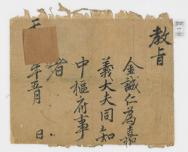 教旨
金誠仁為嘉
義大夫同知
中樞府事
者
年五月 日